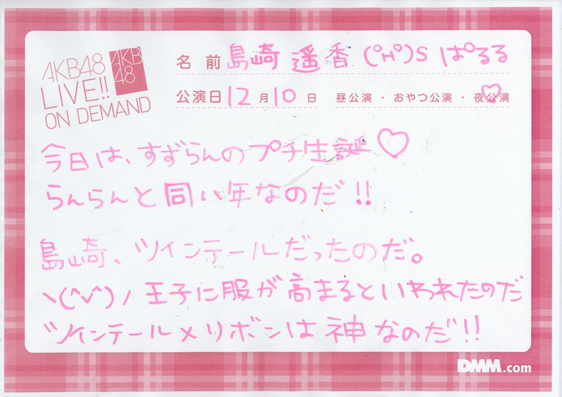 AKB48
LIVE!!
ON DEMAND
AKB
48
名前 島崎 遥香 (°ʜ°)S ぱるる
公演日 12月10日 昼公演・おやつ公演・夜公演
今日は、すずらんのプチ生誕♡
らんらんと同い年なのだ!!
島崎、ツインテールだったのだ。
ヽ(^v^)ノ 王子に服が高まるといわれたのだ
ツインテール×リボンは神なのだ!!
DMM.com